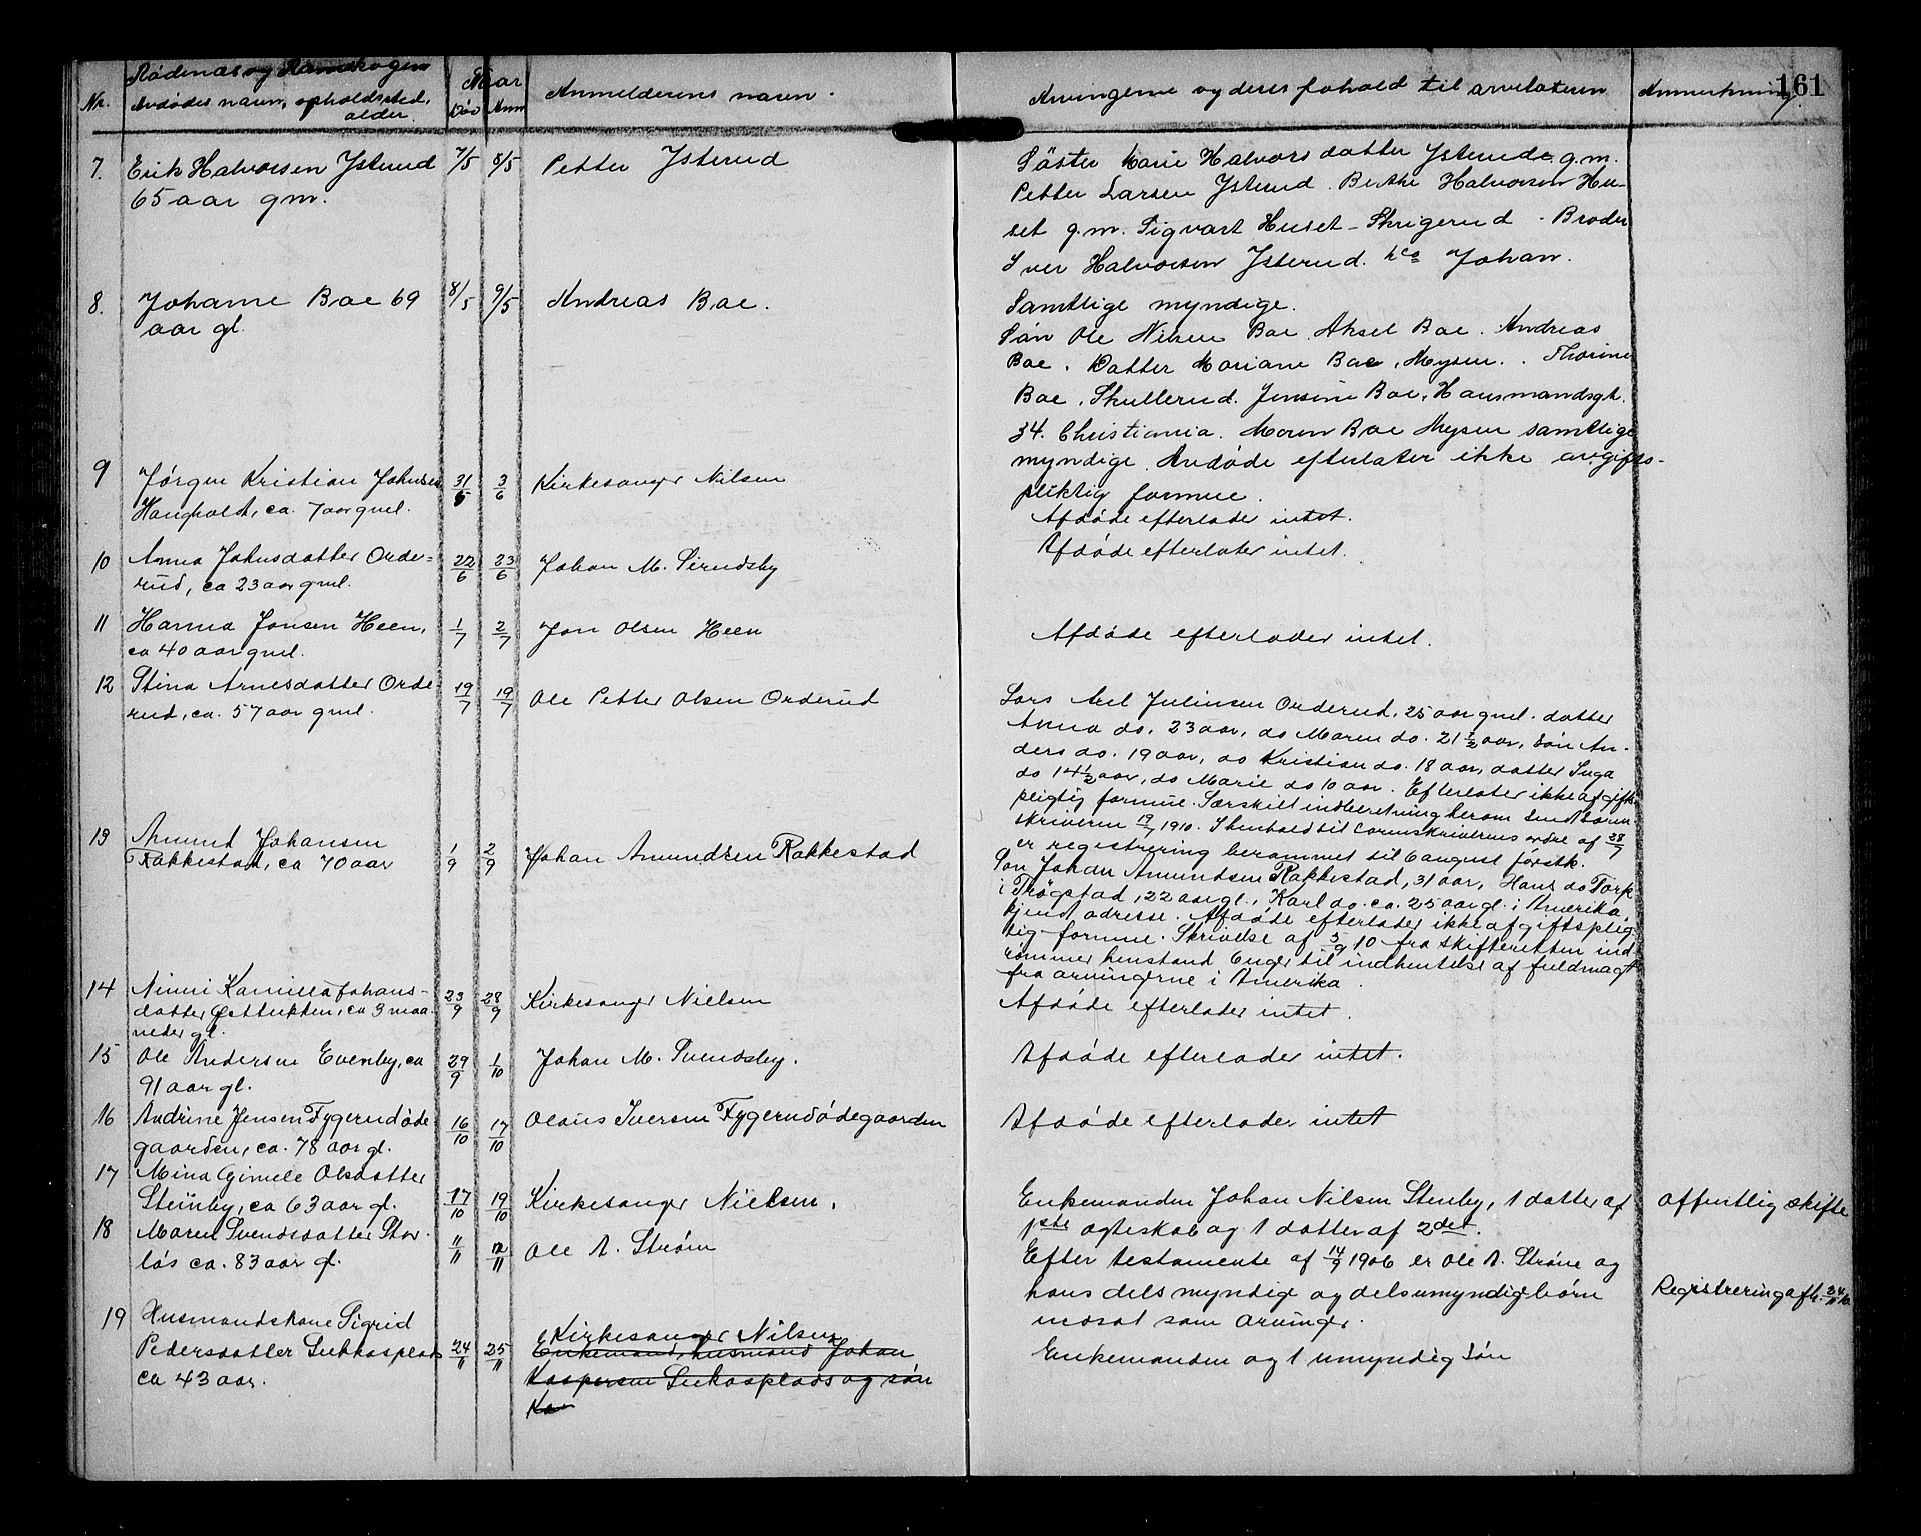 161
Rødenæs og Rømskogen
Naar
Nr. Avdødes navn, opholdssted, alder. Død Anm Anmelderens navn. Arvingerne og deres forhold til arvelateren Anmerkning.
7. Erik Halvorsen Ysterud 7/5 8/5 Petter Ysterud
65 aar gm.
Søster Marie Halvorsdatter Ysterude g.m.
Petter Larsen Ysterud. Berthe Halvorsen Hu-
set g.m. Sigvart Huset - Skrigerud - Broder
Iver Halvorsen Ysterud. Johan.
Samtlige myndige.
8. Johanne Boe 69 8/5 9/5 Andreas Boe.
aar gl.
Søn Ole Nilsen Boe. Aksel Boe. Andreas
Boe. Datter Mariane Boe, Mysen. Thorine
Boe, Skullerud. Jensine Boe, Hausmandsgt.
34. Christiania. Maren Boe Mysen samtlige
myndige. Avdøde efterlater ikke avgifts-
pliktig formue.
9 Jørgen Kristian Johnsen 31/5 3/6 Kirkesanger Nilsen
Haugholdt, ca. 7 aar gml.
Afdøde efterlader intet.
10 Anna Johnsdatter Orde= 22/6 23/6 Johan M.
rud, ca 23 aar gml.
Afdøde efterlater intet.
11 Hanna Jonsen Heen, 1/7 2/7 Jon Olsen Heen
ca 40 aar gml.
Afdøde efterlader intet.
12 Stina Arnesdatter Orde 19/7 19/7 Ole Petter Olsen Orderud
rud, ca. 57 aar gml.
Axel Juliusen Orderud, 25 aar gml. datter
Anna do. 23 aar, do Maren do. 21 1/2 aar, Søn An-
ders do. 19 aar, do Kristian do. 18 aar, datter Inga
do 14 1/2 aar, do Marie do 10 aar. Efterlater ikke afgifts
pligtig formue. Særskilt indberetning herom sendt soren
skriveren 19/7 1910. I henhold til sorenskriverens ordre af 28/7
er registrering berammet til 6 august førstk.
13 Amund Johansen
Rakkestad, ca 70 aar 1/9 2/9 Johan Amundsen Rakkestad
Søn Johan Amundsen Rakkestad, 31 aar, Hans do Torp
i Trøgstad, 22 aar gl., Karl do. ca. 25 aar gl. i Amerika,
kjend adresse. Afdøde efterlader ikke afgiftsplig
tig formue. Skrivelse af 5/9 10 fra skifteretten ind
rømmer henstand 6 uger til indhentelse af fuldmagt
fra arvingerne i Amerika.
14 Ninni Kamilla Johans- 23/9 28/9 Kirkesanger Nielsen
datter, ca 3 maa
neder gl.
Afdøde efterlader intet.
15 Ole Andersen Evenby, ca 29/9 1/10 Johan M. Svendsby.
91 aar gl.
Afdøde efterlader intet.
16 Andrine Jensen Fygerudøde 16/10 17/10 Olaus Iversen Fygerudødegaarden
gaarden, ca. 78 aar gl.
Afdøde efterlader intet
17 Mina Gimele Olsdatter
Stenby, ca 63 aar gl. 17/10 19/10 Kirkesanger Nielsen.
Enkemanden Johan Nilsen Stenby, 1 datter af Offentlig skifte
1ste ægteskab og 1 datter af 2det.
18 Maren Svendsdatter Stor-
løs ca. 83 aar gl. 11/11 12/11 Ole A. Strøm
Efter testamente af 14/9 1906 er Ole A. Strøm og
hans dels myndige og dels umyndige børn Registrering afh. 24/11 10
indsat som arvinger.
19 Husmandskone Sigrid
Pedersdatter 24/11 25/11 Kirkesanger Nilsen
ca 43 aar.
Enkemand, husmand Johan
Kaspersen og søn
Ka
Enkemanden og 1 umyndig søn